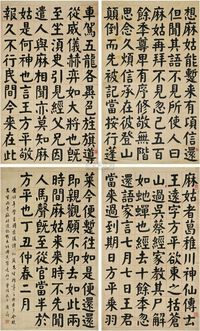 想麻姑能蹔來有頃信還
但聞其語不見所使人曰
麻姑再拜不見忽已五百
餘季尊卑有序修敬無
信承在彼登山
顛倒而先被記當按行蓬
車駕五龍各異色旌旗導
從威儀赫弈如大將也既
至坐須臾引見經父兄因
遣人與麻姑相聞亦莫知麻
姑是何神也言王方平敬
報久不行民間今來在此
麻姑者葛稚川神仙傳云
王遠字方平欲東之括蒼
山過吳蔡經家教其尸解
如蛇蟬也經去十餘年忽
還語家言七月七日王君
當來過到期日方平乘羽
萊今便蹔往如是便還還
即親觀願不即去如此兩
時間麻姑來來時不先聞
人馬聲既至從官當半於
方平也
仲春二月